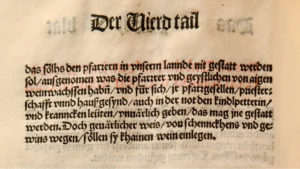 Der Vierd tail
das sölhs den pfarrern in vnsern lannde nit gestatt werden
sol/ausgenomen was die pfarrer vnd geystlichen von aigen
weinwachssen habn/vnd für sich/jr pfarrgesellen/priester-
schafft vnnd haußgesynd/auch in der not den kindlpetterin/
vnd krancken leüten/vnuärlich geben/das mag jne gestatt
werden. Doch geuärlicher weis/von schenckhens vnd ge-
wins wegen/söllen sy khainen wein einlegen.